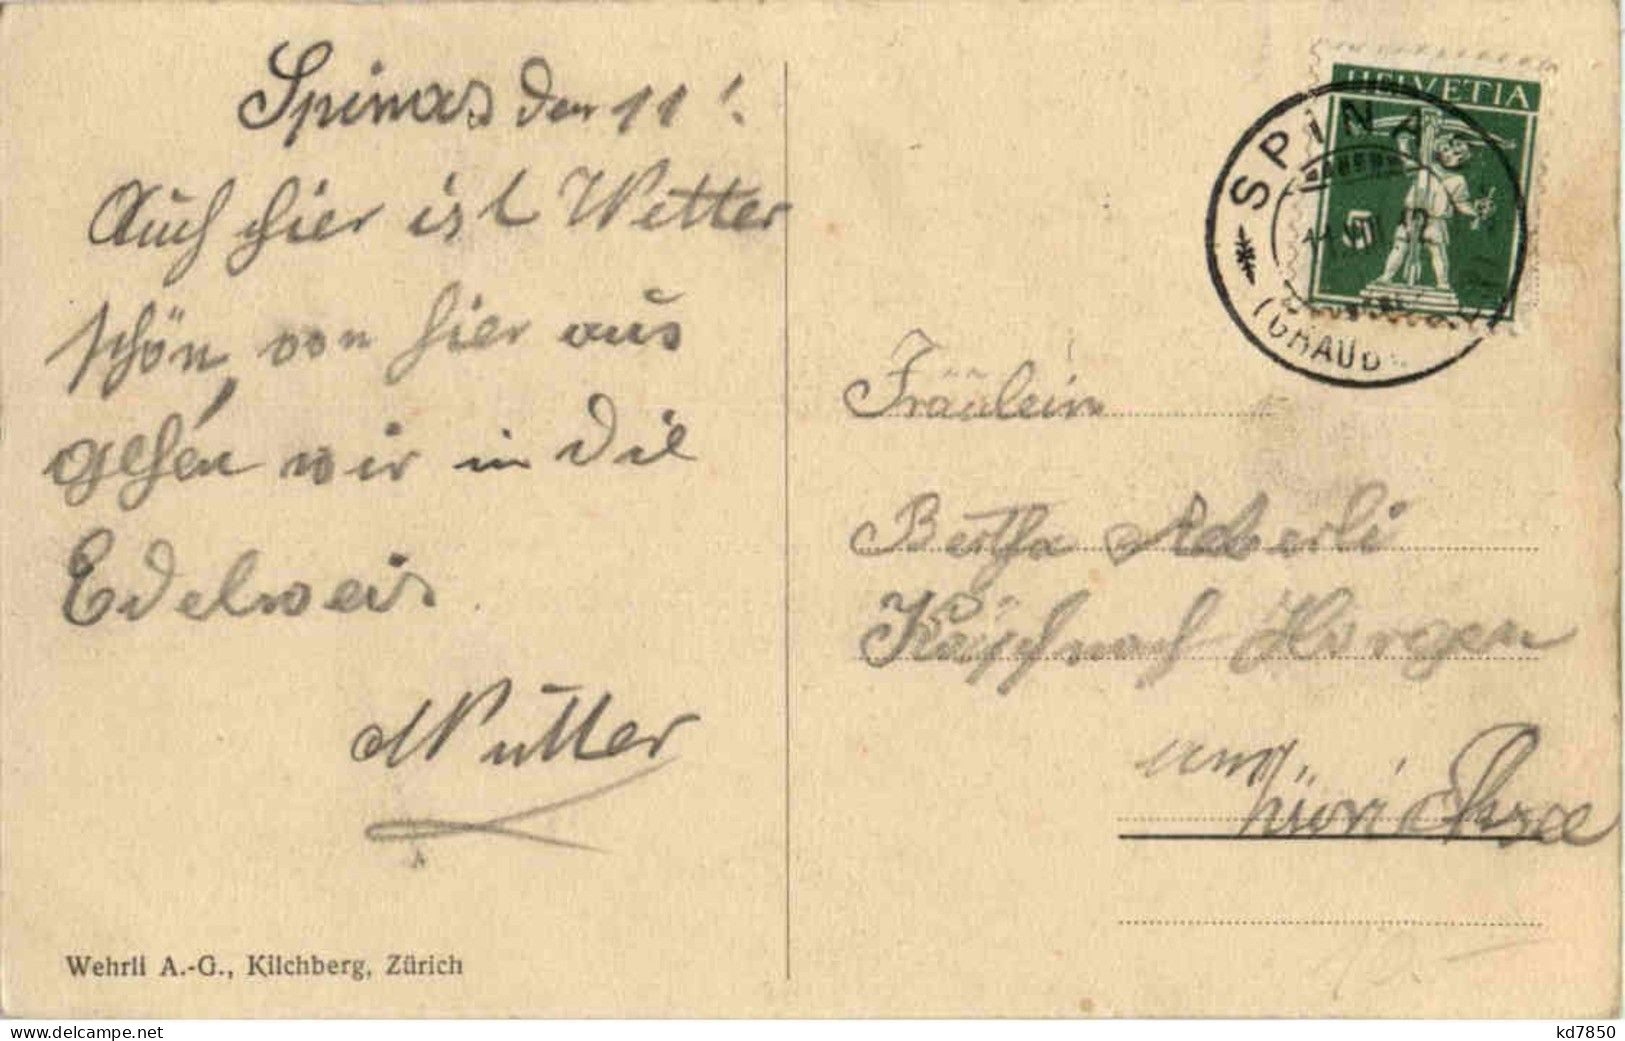 Spinas den 11'.
Auch hier ist Wetter
schön, von hier aus
gehen wir in die
Edelweis.
Mutter
Wehrli A.-G., Kilchberg, Zürich
HELVETIA
5
SPINAS
11.VIII.12
(GRAUB
Fräulein
Bertha Aeberli
Käpfnach-Horgen
am
Zürichsee
www.delcampe.net
kd7850